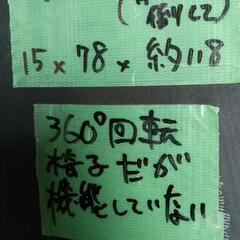 (倒して
15×78×約118
360°回転
椅子だが
機能していない